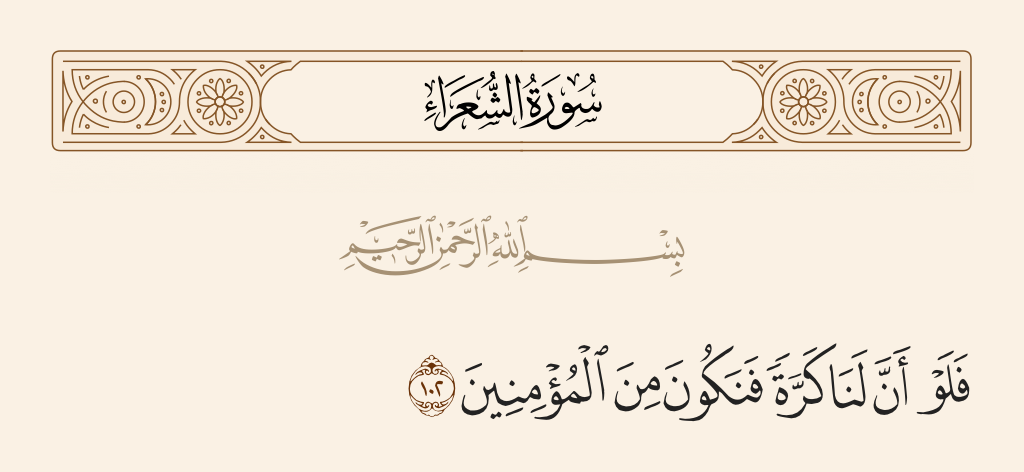 سُورَةُ الشُّعَرَاءِ
بِسْمِ ٱللَّهِ ٱلرَّحْمَٰنِ ٱلرَّحِيمِ
فَلَوْ أَنَّ لَنَا كَرَّةً فَنَكُونَ مِنَ ٱلْمُؤْمِنِينَ ١٠٢